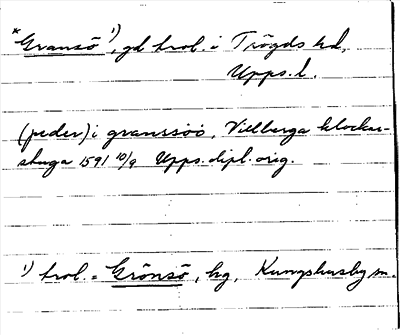 *Gransö 1), gd trol. i Trögds hd,
Upps. l.
(peder) i granssöö, Villberga klockar-
stuga 1591 10/9 Upps. dipl. orig.
1) trol. = Grönsö, hg, Kungshusby sn.